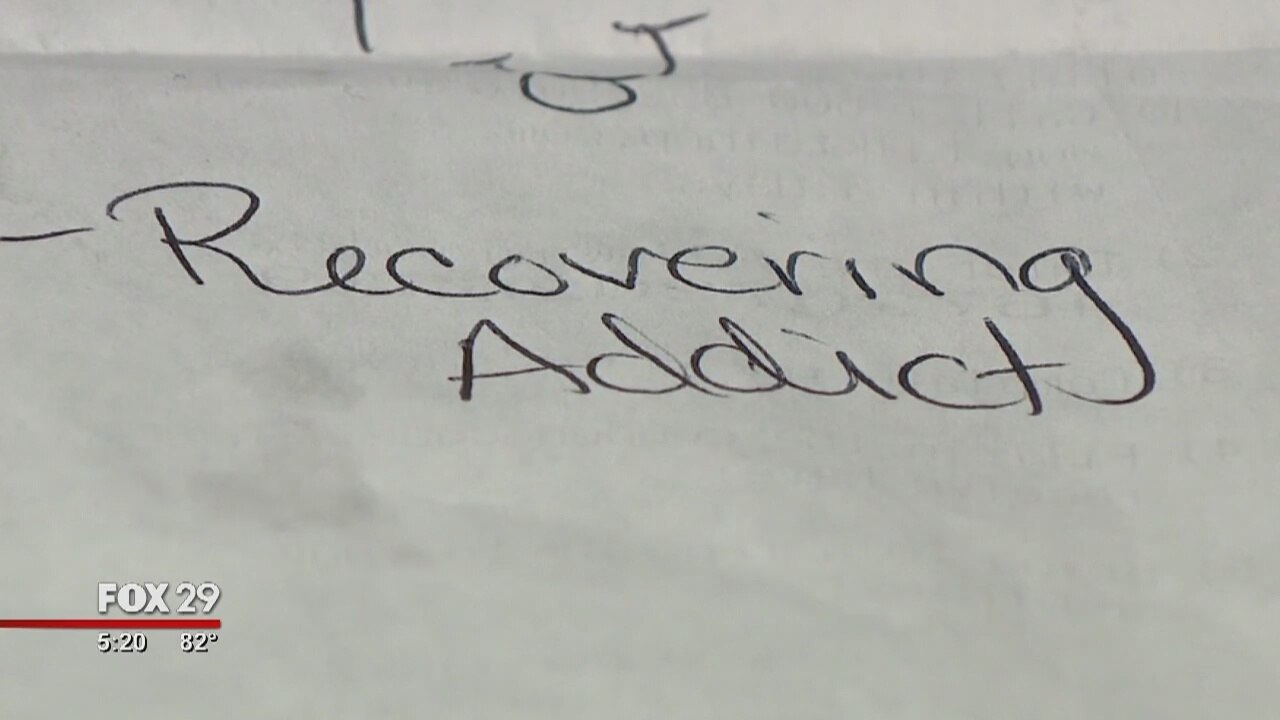 - Recovering
Addict
FOX 29
5:20 82°